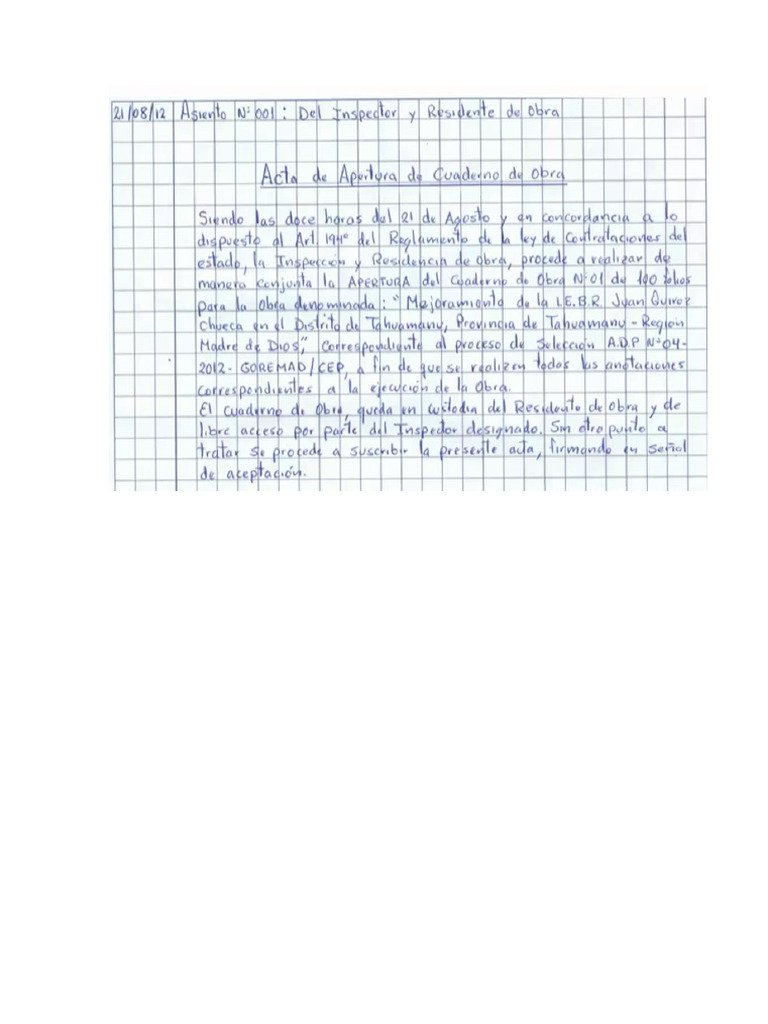 21/08/12 Asiento N° 001: Del Inspector y Residente de Obra
Acta de Apertura de Cuaderno de Obra
Siendo las doce horas del 21 de Agosto y en concordancia a lo
dispuesto al Art. 194° del Reglamento de la ley de Contrataciones del
estado, la Inspección y Residencia de Obra, procede a realizar de
manera conjunta la APERTURA del Cuaderno de Obra N°01 de 100 folios
para la Obra denominada: "Mejoramiento de la I.E.B.R Juan Quiroz
Chueca en el Distrito de Tahuamanu, Provincia de Tahuamanu - Region
Madre de Dios", Correspondiente al proceso de Selección A.D.P N°04-
2012- GOREMAD/CEP, a fin de que se realizen todos las anotaciones
Correspondientes a la ejecución de la Obra.
El Cuaderno de Obra, queda en custodia del Residente de Obra y de
libre acceso por parte del Inspector designado. Sin otro punto a
tratar se procede a suscribir la presente acta, firmando en señal
de aceptación.